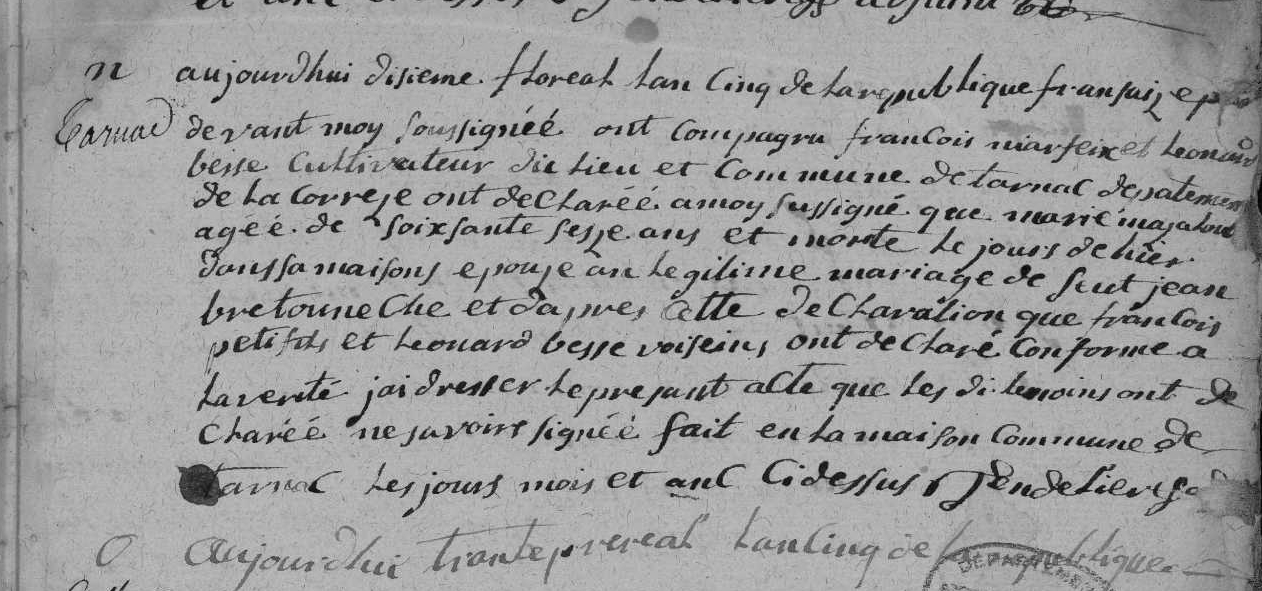 n aujourdhui disieme floreal lan Cinq de la republique fransaize
Tarnac devant moy soussignéé ont Compagru francois marfeix et Leonard
besse Cultivateur du Lieu et Commune de tarnac depatement
de La Correze ont de Claréé a moy sussigné que marie
agéé de soixsante sesze ans et morte le jours de hier
dans sa maisons epouse an legitime mariage de feut jean
bretouneche et dapres Cette de Claration que francois
petifils et Leonard besse voiseins ont de Claré Conforme a
La verité jai dresser le presant acte que Les di temoins ont de
Claréé ne savoire signéé fait en La maison Commune de
tarnac Les jours mois et anC Cidessus
O Aujourdhui trante prereal Lan Cinq de la republique
DEPARTEMENT